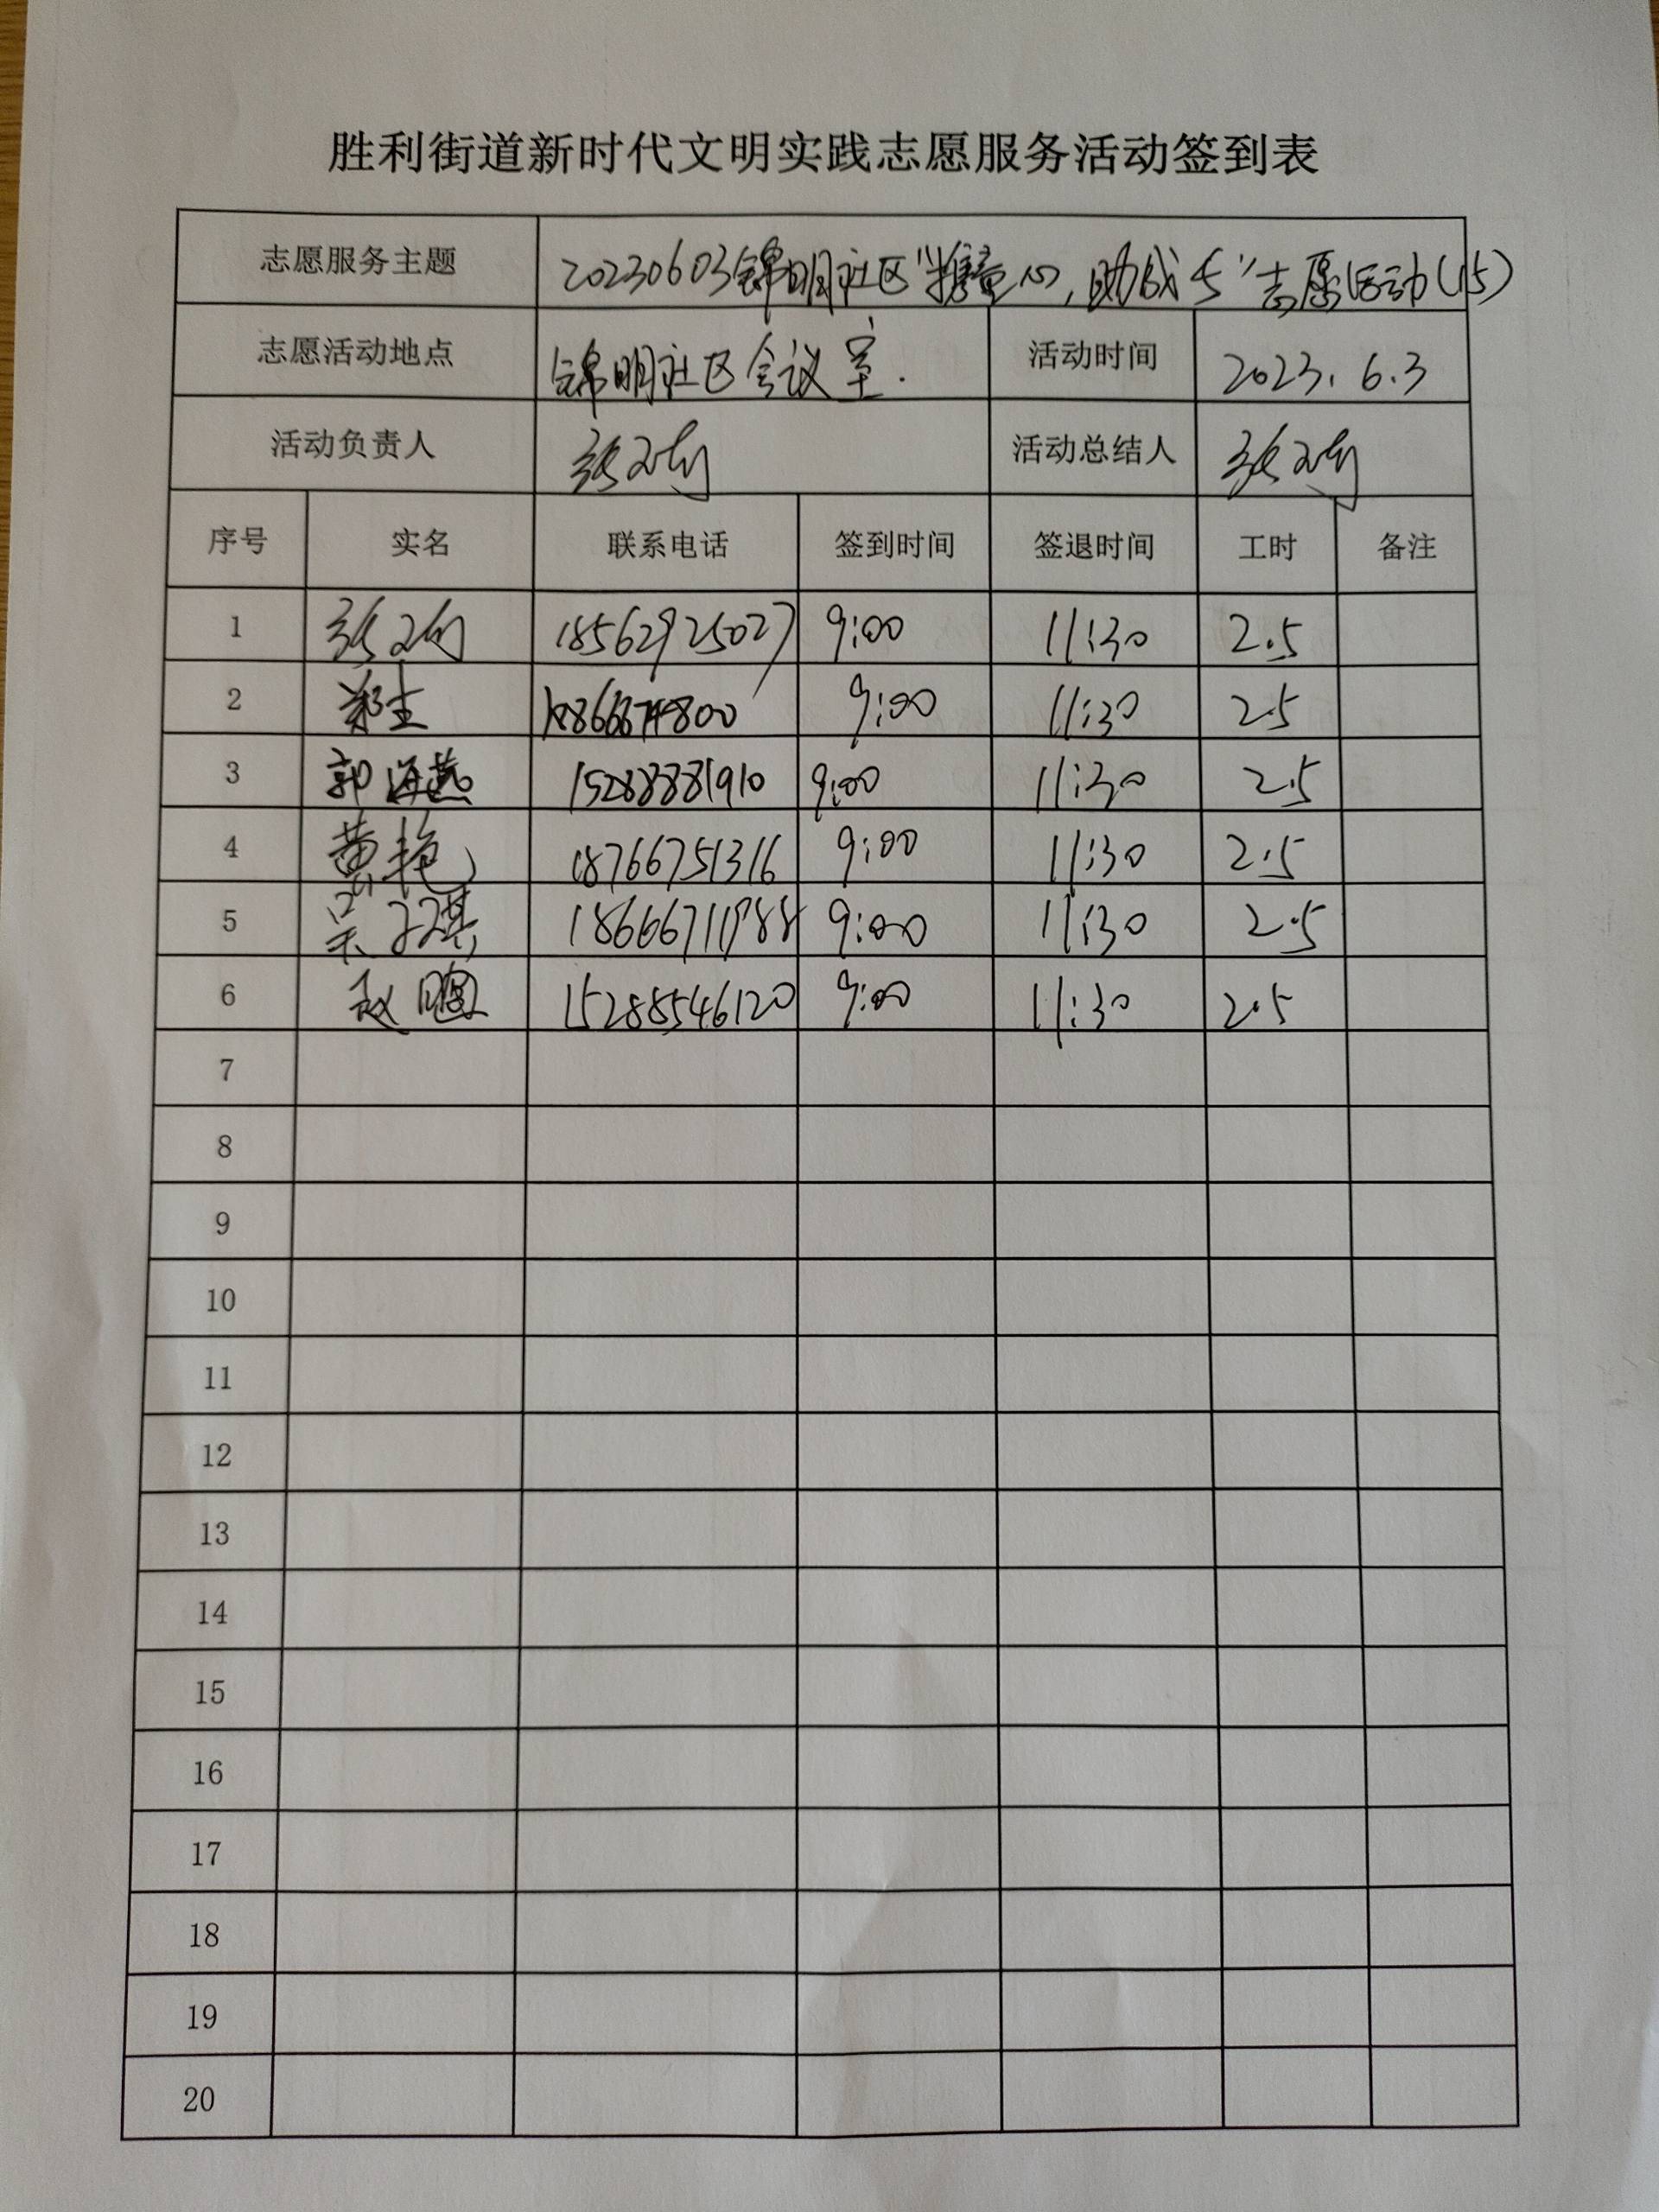 胜利街道新时代文明实践志愿服务活动签到表
志愿服务主题 20230603锦明社区"携童心,助成长"志愿活动(15)
志愿活动地点 锦明社区会议室. 活动时间 2023.6.3
活动负责人 活动总结人
序号 实名 联系电话 签到时间 签退时间 工时 备注
1 18562925027 9:00 11:30 2.5
2 9:00 11:30 2.5
3 郭海燕 15288881910 9:00 11:30 2.5
4 黄艳 18766751316 9:00 11:30 2.5
5 吴子琪 18666711988 9:00 11:30 2.5
6 赵 15288546120 9:00 11:30 2.5
7
8
9
10
11
12
13
14
15
16
17
18
19
20